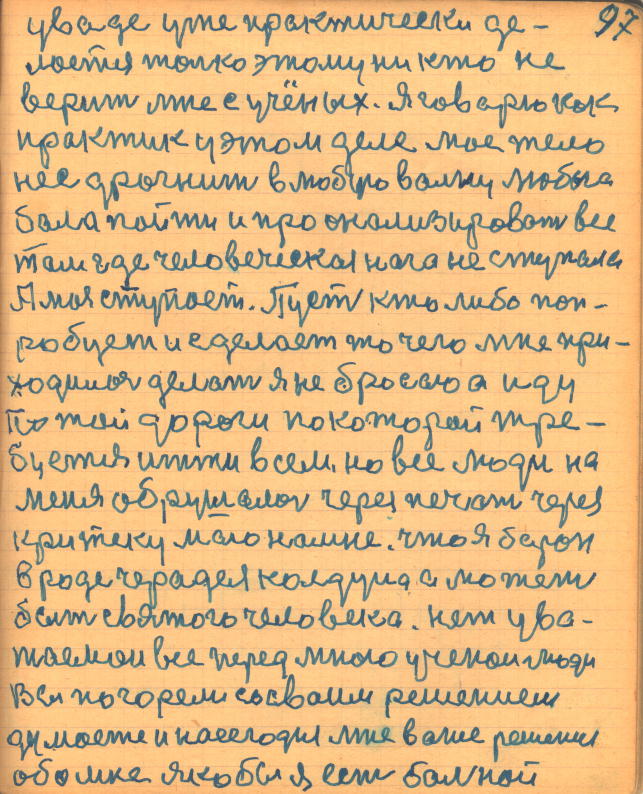 97
ува де уже практически де-
лается толко этому никто не
верит мне с учёных. Я говарю как
практик у этом деле мое тело
нес дрогнит в любую волну любыга
бала пойти и проонализировот все
там где человеческая нага не ступала
А моя ступает. Пуст кто либо поп-
робует и сделает то чего мне при-
ходился делат я не бросаю а иду
По той дороги по которой тре-
буется итти всем, но все люди на
меня обрушалог через печат через
критеку мало на мне. что я барон
в роде чарадея колдуна а может
быт святого человека. нет ува-
жаемои все перед мною ученои люди
Все погорели сосваим решением
думаете и на сегодня мне ваше решения
обомне якобы я ест балной